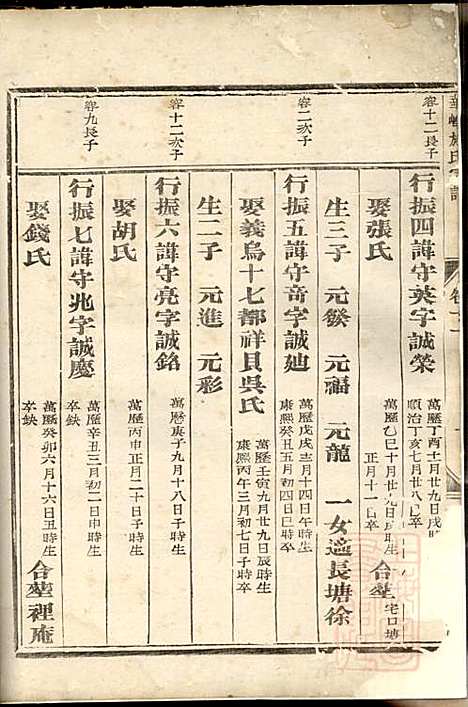 容十二長子
行振四諱守英字誠榮
萬歷丁酉十二月廿九日戌時
順治丁亥七月廿八日
娶張氏
萬歷乙巳十月廿九日
正月十一日卒
合塟
宅口塘
生三子 元發 元福 元龍 一女適長塘徐
容二次子
行振五諱守音字誠廸
萬歷戊戌十二月十四日午時生
康熙癸丑五月初四日巳時卒
娶義烏十七都祥貝吳氏
萬歷壬寅九月廿九日辰時生
康熙丙午三月初七日子時卒
生二子 元進 元彩
容十二次子
行振六諱守亮字誠銘
萬曆庚子九月十八日子時生
娶胡氏
萬歷丙申正月二十日子時生
容九長子
行振七諱守兆字誠慶
萬歷辛丑三月初二日申時生
卒缺
娶錢氏
萬歷癸卯六月十六日丑時生
卒缺
合塟裡庵